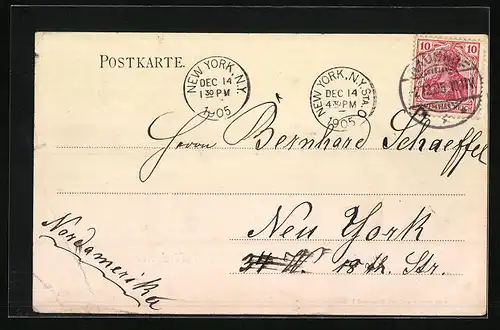 POSTKARTE.
NEW YORK, N.Y.
DEC 14
1 30 PM
1905
NEW YORK, N.Y. STA. O
DEC 14
4 30 PM
1905
10 10
Herrn Bernhard Schaeffel
New York
34 W. 18 th. Str.
Nordamerika